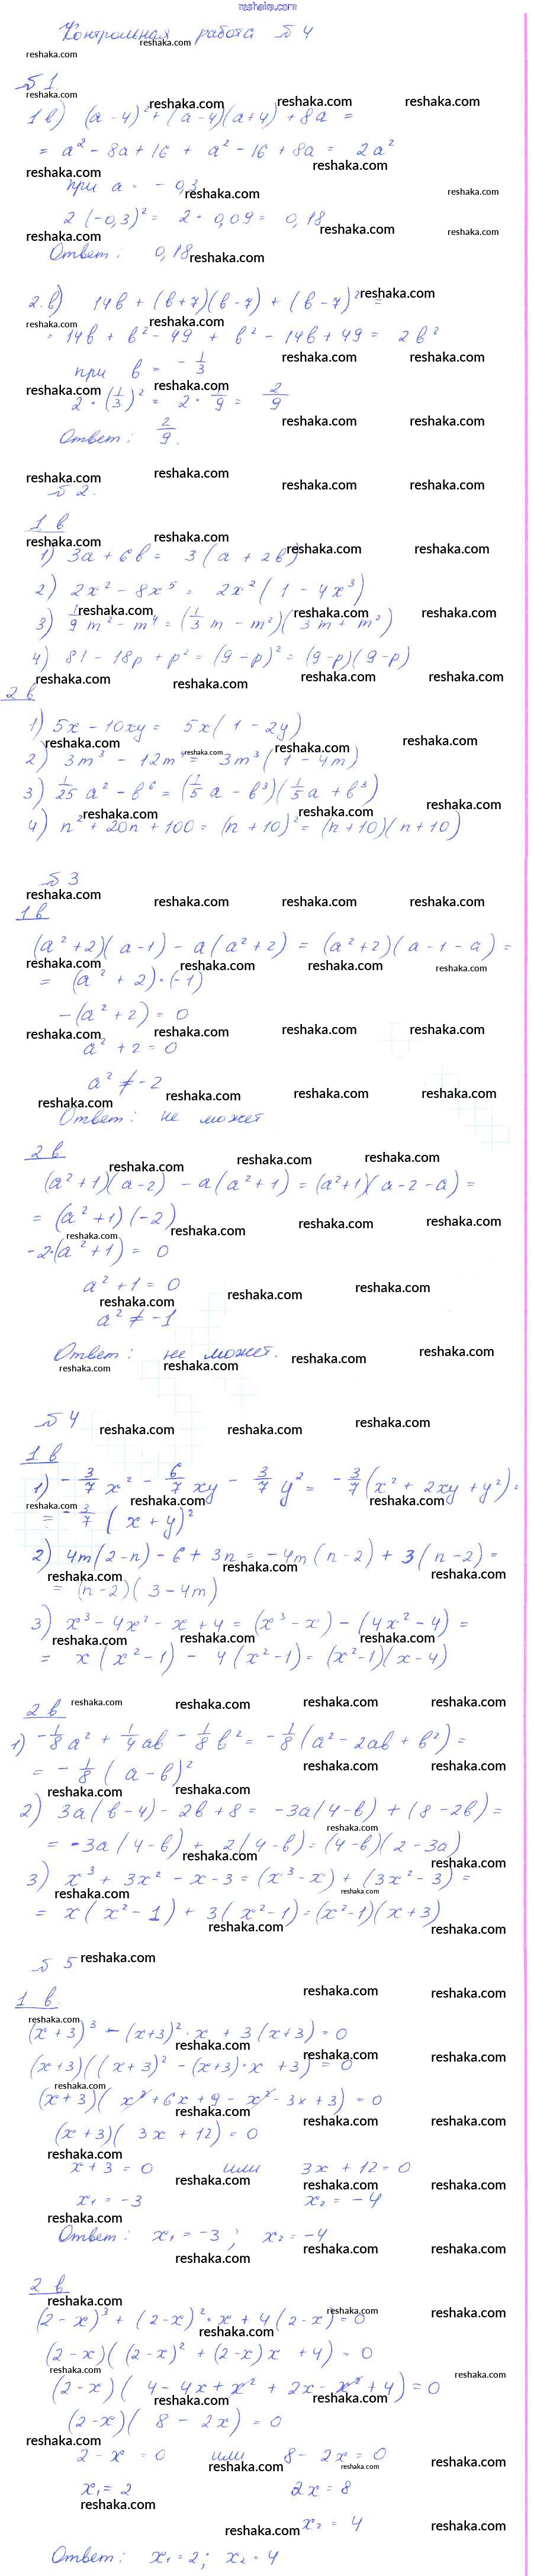 reshaka.com
Контрольная работа №4
№1
1в) (a-4)²+(a-4)(a+4)+8a =
= a²-8a+16 + a²-16+8a = 2a²
при a = -0,3
2(-0,3)² = 2·0,09 = 0,18
Ответ: 0,18
2.в) 14в + (в+7)(в-7) + (в-7)² =
= 14в + в² - 49 + в² - 14в + 49 = 2в²
при в = -1/3
2·(1/3)² = 2·1/9 = 2/9
Ответ: 2/9.
№2.
1 в
1) 3a+6в = 3(a+2в)
2) 2x²-8x⁵ = 2x²(1-4x³)
3) 1/9 m² - m⁴ = (1/3 m - m²)(1/3 m + m²)
4) 81-18p+p² = (9-p)² = (9-p)(9-p)
2 в
1) 5x-10xy = 5x(1-2y)
2) 3m³ - 12m⁴ = 3m³(1-4m)
3) 1/25 a² - в⁶ = (1/5 a - в³)(1/5 a + в³)
4) n²+20n+100 = (n+10)² = (n+10)(n+10)
№3
1в
(a²+2)(a-1) - a(a²+2) = (a²+2)(a-1-a) =
= (a²+2)·(-1)
-(a²+2) = 0
a²+2 = 0
a² ≠ -2
Ответ: не может
2 в
(a²+1)(a-2) - a(a²+1) = (a²+1)(a-2-a) =
= (a²+1)(-2)
-2·(a²+1) = 0
a²+1 = 0
a² ≠ -1
Ответ: не может.
№4
1 в
1) -3/7 x² - 6/7 xy - 3/7 y² = -3/7 (x²+2xy+y²) =
= -3/7 (x+y)²
2) 4m(2-n) - 6 + 3n = -4m(n-2) + 3(n-2) =
= (n-2)(3-4m)
3) x³-4x²-x+4 = (x³-x) - (4x²-4) =
= x(x²-1) - 4(x²-1) = (x²-1)(x-4)
2 в
1) -1/8 a² + 1/4 aв - 1/8 в² = -1/8 (a²-2aв+в²) =
= -1/8 (a-в)²
2) 3a(в-4) - 2в+8 = -3a(4-в) + (8-2в) =
= -3a(4-в) + 2(4-в) = (4-в)(2-3a)
3) x³+3x²-x-3 = (x³-x) + (3x²-3) =
= x(x²-1) + 3(x²-1) = (x²-1)(x+3)
№5
1 в.
(x+3)³ - (x+3)²·x + 3(x+3) = 0
(x+3)((x+3)² - (x+3)·x + 3) = 0
(x+3)(x²+6x+9-x²-3x+3) = 0
(x+3)(3x+12) = 0
x+3 = 0 или 3x+12 = 0
x₁ = -3 x₂ = -4
Ответ: x₁ = -3; x₂ = -4
2 в
(2-x)³ + (2-x)²·x + 4(2-x) = 0
(2-x)((2-x)² + (2-x)x + 4) = 0
(2-x)(4-4x+x²+2x-x²+4) = 0
(2-x)(8-2x) = 0
2-x = 0 или 8-2x = 0
x₁ = 2 2x = 8
x₂ = 4
Ответ: x₁ = 2; x₂ = 4